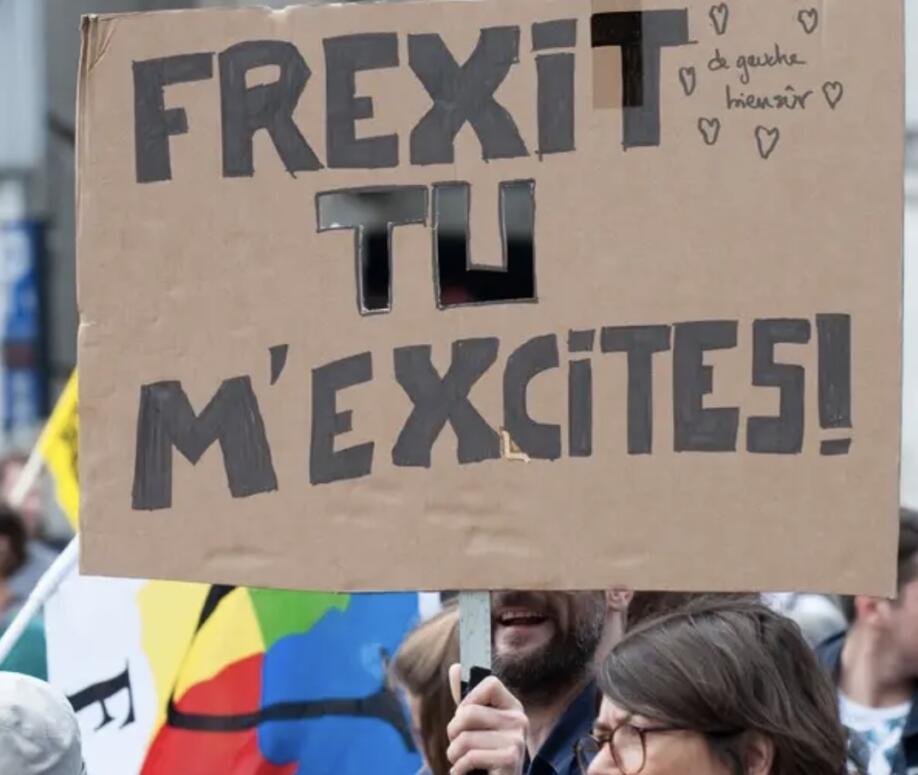 FREXiT
de gauche
bien sûr
TU
M'EXCiTES!
F